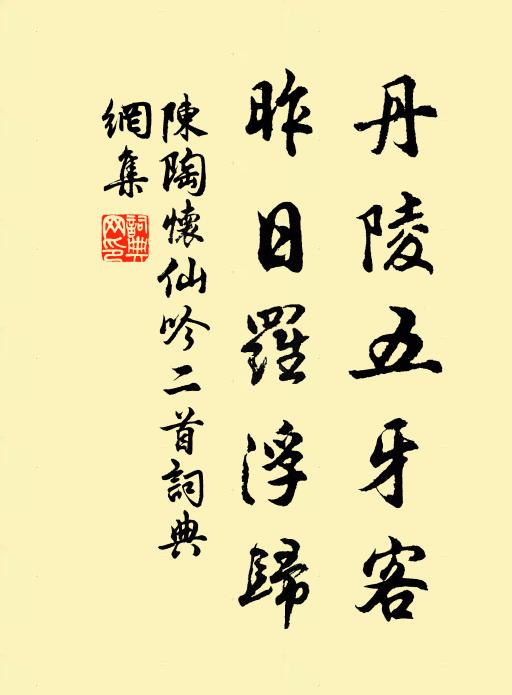 丹陵五牙客
昨日羅浮歸
陳陶懷仙吟二首詞典
網集
詞典網印